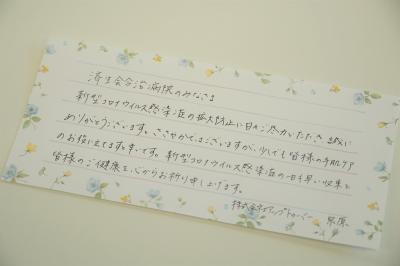 済生会今治病院のみなさま
新型コロナウイルス感染症の拡大防止に日々ご尽力いただき誠に
ありがとうございます。ささやかではございますが、少しでも皆様の手肌ケア
のお役に立てますと幸いです。新型コロナウイルス感染症の一日も早い収束と
皆様のご健康を心からお祈り申し上げます。
株式会社